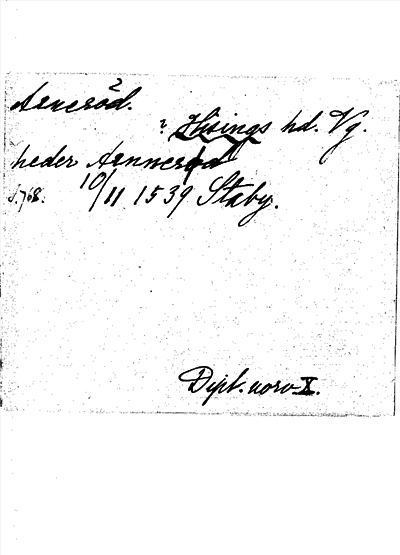 Arneröd.
? Hisings hd. Vg.
heder Arnnerød
s. 768. 10/11 1539 Staby.
Dipl. norv. X.